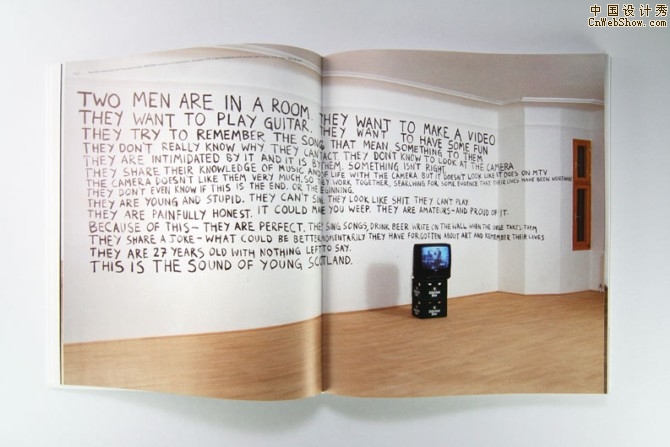 中国设计秀
CnWebShow.com
TWO MEN ARE IN A ROOM. THEY WANT TO MAKE A VIDEO
THEY WANT TO PLAY GUITAR. THEY WANT TO HAVE SOME FUN
THEY TRY TO REMEMBER THE SONG THAT MEAN SOMETHING TO THEM
THEY DON'T REALLY KNOW WHY THEY CAN'T ACT. THEY DON'T KNOW TO LOOK AT THE CAMERA
THEY ARE INTIMIDATED BY IT AND IT IS BY THEM. SOMETHING ISN'T RIGHT
THEY SHARE THEIR KNOWLEDGE OF MUSIC AND OF LIFE WITH THE CAMERA BUT IT DOESN'T LOOK LIKE IT DOES ON MTV
THE CAMERA DOESN'T LIKE THEM VERY MUCH. SO THEY WORK TOGETHER, SEARCHING FOR SOME EVIDENCE THAT THEIR LIVES HAVE BEEN WORTHWHILE
THEY DON'T EVEN KNOW IF THIS IS THE END. OR THE BEGINNING.
THEY ARE YOUNG AND STUPID. THEY CAN'T SING. THEY LOOK LIKE SHIT. THEY CAN'T PLAY.
THEY ARE PAINFULLY HONEST. IT COULD MAKE YOU WEEP. THEY ARE AMATEURS-AND PROUD OF IT.
BECAUSE OF THIS- THEY ARE PERFECT. THEY SING SONGS, DRINK BEER WRITE ON THE WALL WHEN THE URGE TAKES THEM
THEY SHARE A JOKE- WHAT COULD BE BETTER. MOMENTARILY THEY HAVE FORGOTTEN ABOUT ART AND REMEMBER THEIR LIVES
THEY ARE 27 YEARS OLD WITH NOTHING LEFT TO SAY.
THIS IS THE SOUND OF YOUNG SCOTLAND.